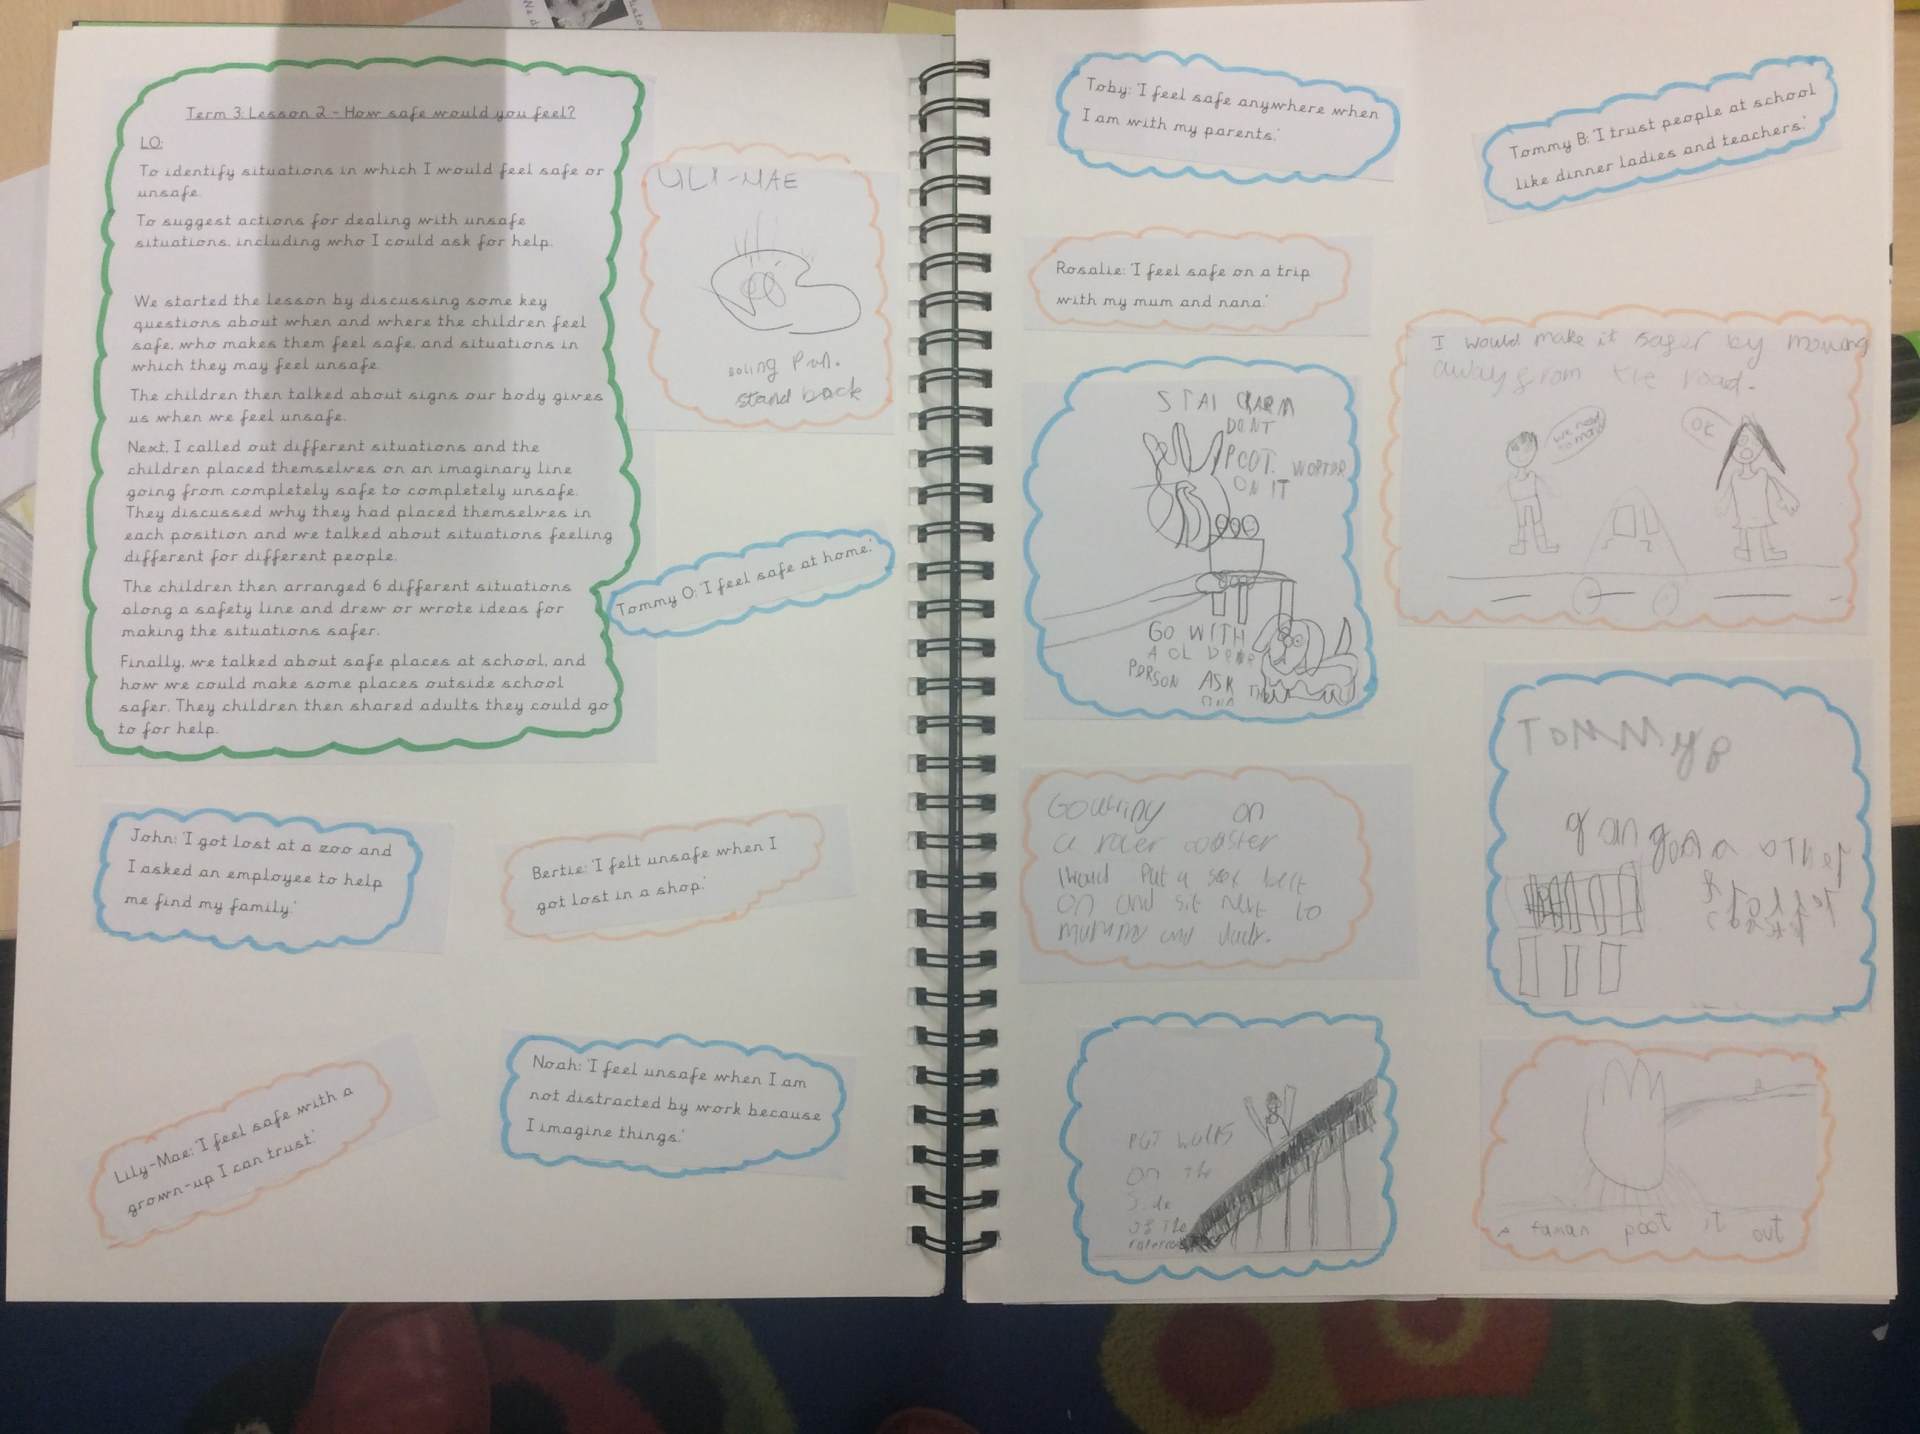 Term 3: Lesson 2 - How safe would you feel?
LO:
To identify situations in which I would feel safe or
unsafe.
To suggest actions for dealing with unsafe
situations, including who I could ask for help.
We started the lesson by discussing some key
questions about when and where the children feel
safe, who makes them feel safe, and situations in
which they may feel unsafe.
The children then talked about signs our body gives
us when we feel unsafe.
Next, I called out different situations and the
children placed themselves on an imaginary line
going from completely safe to completely unsafe.
They discussed why they had placed themselves in
each position and we talked about situations feeling
different for different people.
The children then arranged 6 different situations
along a safety line and drew or wrote ideas for
making the situations safer.
Finally, we talked about safe places at school, and
how we could make some places outside school
safer. They children then shared adults they could go
to for help.
stand back
Tommy O: 'I feel safe at home.'
John: 'I got lost at a zoo and
I asked an employee to help
me find my family.'
Bertie: 'I felt unsafe when I
got lost in a shop.'
Lily-Mae: 'I feel safe with a
grown-up I can trust.'
Noah: 'I feel unsafe when I am
not distracted by work because
I imagine things.'
Toby: 'I feel safe anywhere when
I am with my parents.'
Tommy B: 'I trust people at school
like dinner ladies and teachers.'
Rosalie: 'I feel safe on a trip
with my mum and nana.'
I would make it safer by moving
away from the road.
OK
STAI
DONT
POOT
ON IT
GO WITH
PERSON ASK
on
a
I put a
on and sit next to
and
TOMMy
on the
of the
a poot it out